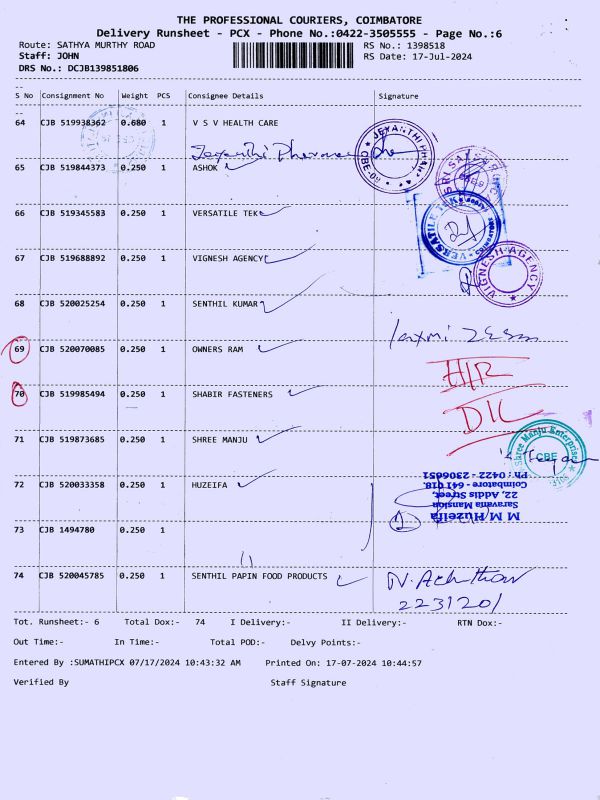 THE PROFESSIONAL COURIERS, COIMBATORE
Delivery Runsheet - PCX - Phone No.:0422-3505555 - Page No.:6
Route: SATHYA MURTHY ROAD RS No.: 1398518
Staff: JOHN RS Date: 17-Jul-2024
DRS No.: DCJB139851806
S No Consignment No Weight PCS Consignee Details Signature
64 CJB 519938362 0.680 1 V S V HEALTH CARE
65 CJB 519844373 0.250 1 ASHOK
66 CJB 519345583 0.250 1 VERSATILE TEK
VERSATILE TEK
67 CJB 519688892 0.250 1 VIGNESH AGENCY
VIGNESH AGENCY
68 CJB 520025254 0.250 1 SENTHIL KUMAR
69 CJB 520070085 0.250 1 OWNERS RAM
70 CJB 519985494 0.250 1 SHABIR FASTENERS
71 CJB 519873685 0.250 1 SHREE MANJU
Shree Manju Enterprises
CBE
72 CJB 520033358 0.250 1 HUZEIFA
M M Huzeifa
22, Addis Street,
Saravana Mansion
Coimbatore - 641 018.
Ph : 0422 - 2306651
73 CJB 1494780 0.250 1
74 CJB 520045785 0.250 1 SENTHIL PAPIN FOOD PRODUCTS
Tot. Runsheet:- 6 Total Dox:- 74 I Delivery:- II Delivery:- RTN Dox:-
Out Time:- In Time:- Total POD:- Delvy Points:-
Entered By :SUMATHIPCX 07/17/2024 10:43:32 AM Printed On: 17-07-2024 10:44:57
Verified By Staff Signature